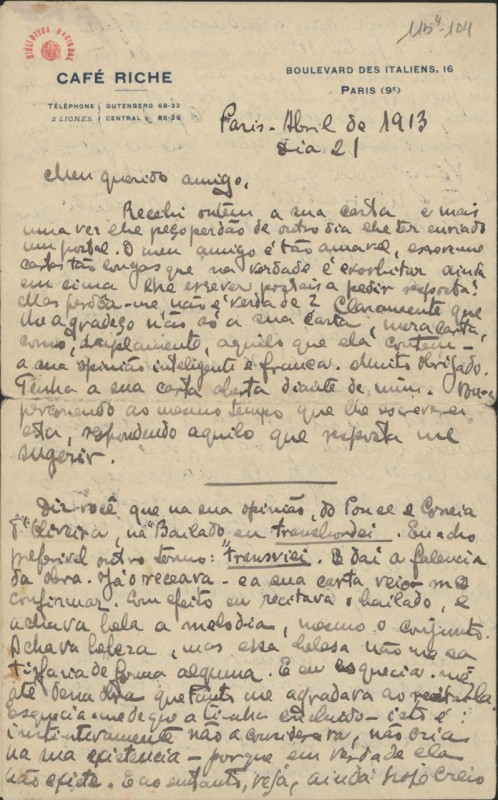 115⁴-104
BIBLIOTECA NACIONAL
CAFÉ RICHE
BOULEVARD DES ITALIENS, 16
PARIS (9ᵉ)
TÉLÉPHONE GUTENBERG 68-33
2 LIGNES CENTRAL 86-35
Paris - Abril de 1913
Dia 21
Meu querido amigo,
Recebi ontem a sua carta e mais
uma vez lhe peço perdão de outro dia lhe ter enviado
um postal. O meu amigo é tão amavel, escreve-me
cartas tão longas que na verdade é exorbitar ainda
em cima lhe escrever postais a pedir resposta!
Mas perdôa-me não é verdade? Claramente que
lhe agradeço não só a sua carta, mera carta,
como, duplamente, aquilo que ela contem -
a sua opinião inteligente e franca. Muito obrigado.
Tenho a sua carta aberta diante de mim.
percorrendo ao mesmo tempo que lhe escreverei
esta, respondendo aquilo que resposta me
sugerir.
Diz você que na sua opinião, do Ponce e Correia
d'Oliveira, no "Bailado" eu transbordei. Eu acho
preferivel outro termo: "transviei". E daí a falencia
da obra. Já o receava - e a sua carta veio-me
confirmar. Com efeito eu recitava o bailado, e
achava bela a melodia, mesmo o conjunto.
Achava beleza, mas essa beleza não me sa
tisfazia de forma alguma. E eu esquecia-me
até dessa obra que tanto me agradava ao recitá-la
esquecia-me de que a tinha concluido - isto é:
instintivamente não a considerava, não cria
na sua existencia - porque em verdade ela
não existe. E no entanto, veja, ainda hoje creio